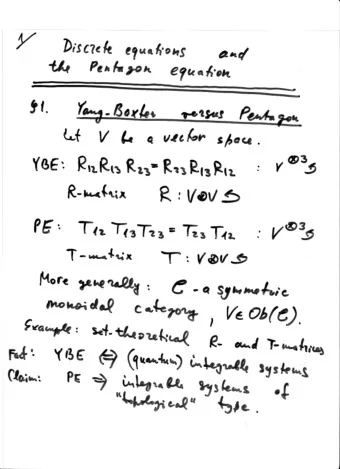 1/
Discrete equations and
the Pentagon equation
§1. Yang-Baxter versus Pentagon
Let V be a vector space.
YBE: R₁₂R₁₃R₂₃ = R₂₃R₁₃R₁₂ : V^⊗3 ↺
R-matrix R : V⊗V ↺
PE: T₁₂T₁₃T₂₃ = T₂₃T₁₂ : V^⊗3 ↺
T-matrix T : V⊗V ↺
More generally : C - a symmetric
monoidal category, V∈Ob(C).
Example: set-theoretical R- and T-matrices
Fact: YBE ⇔ (quantum) integrable systems
Claim: PE ⇒ integrable systems of
"topological" type.